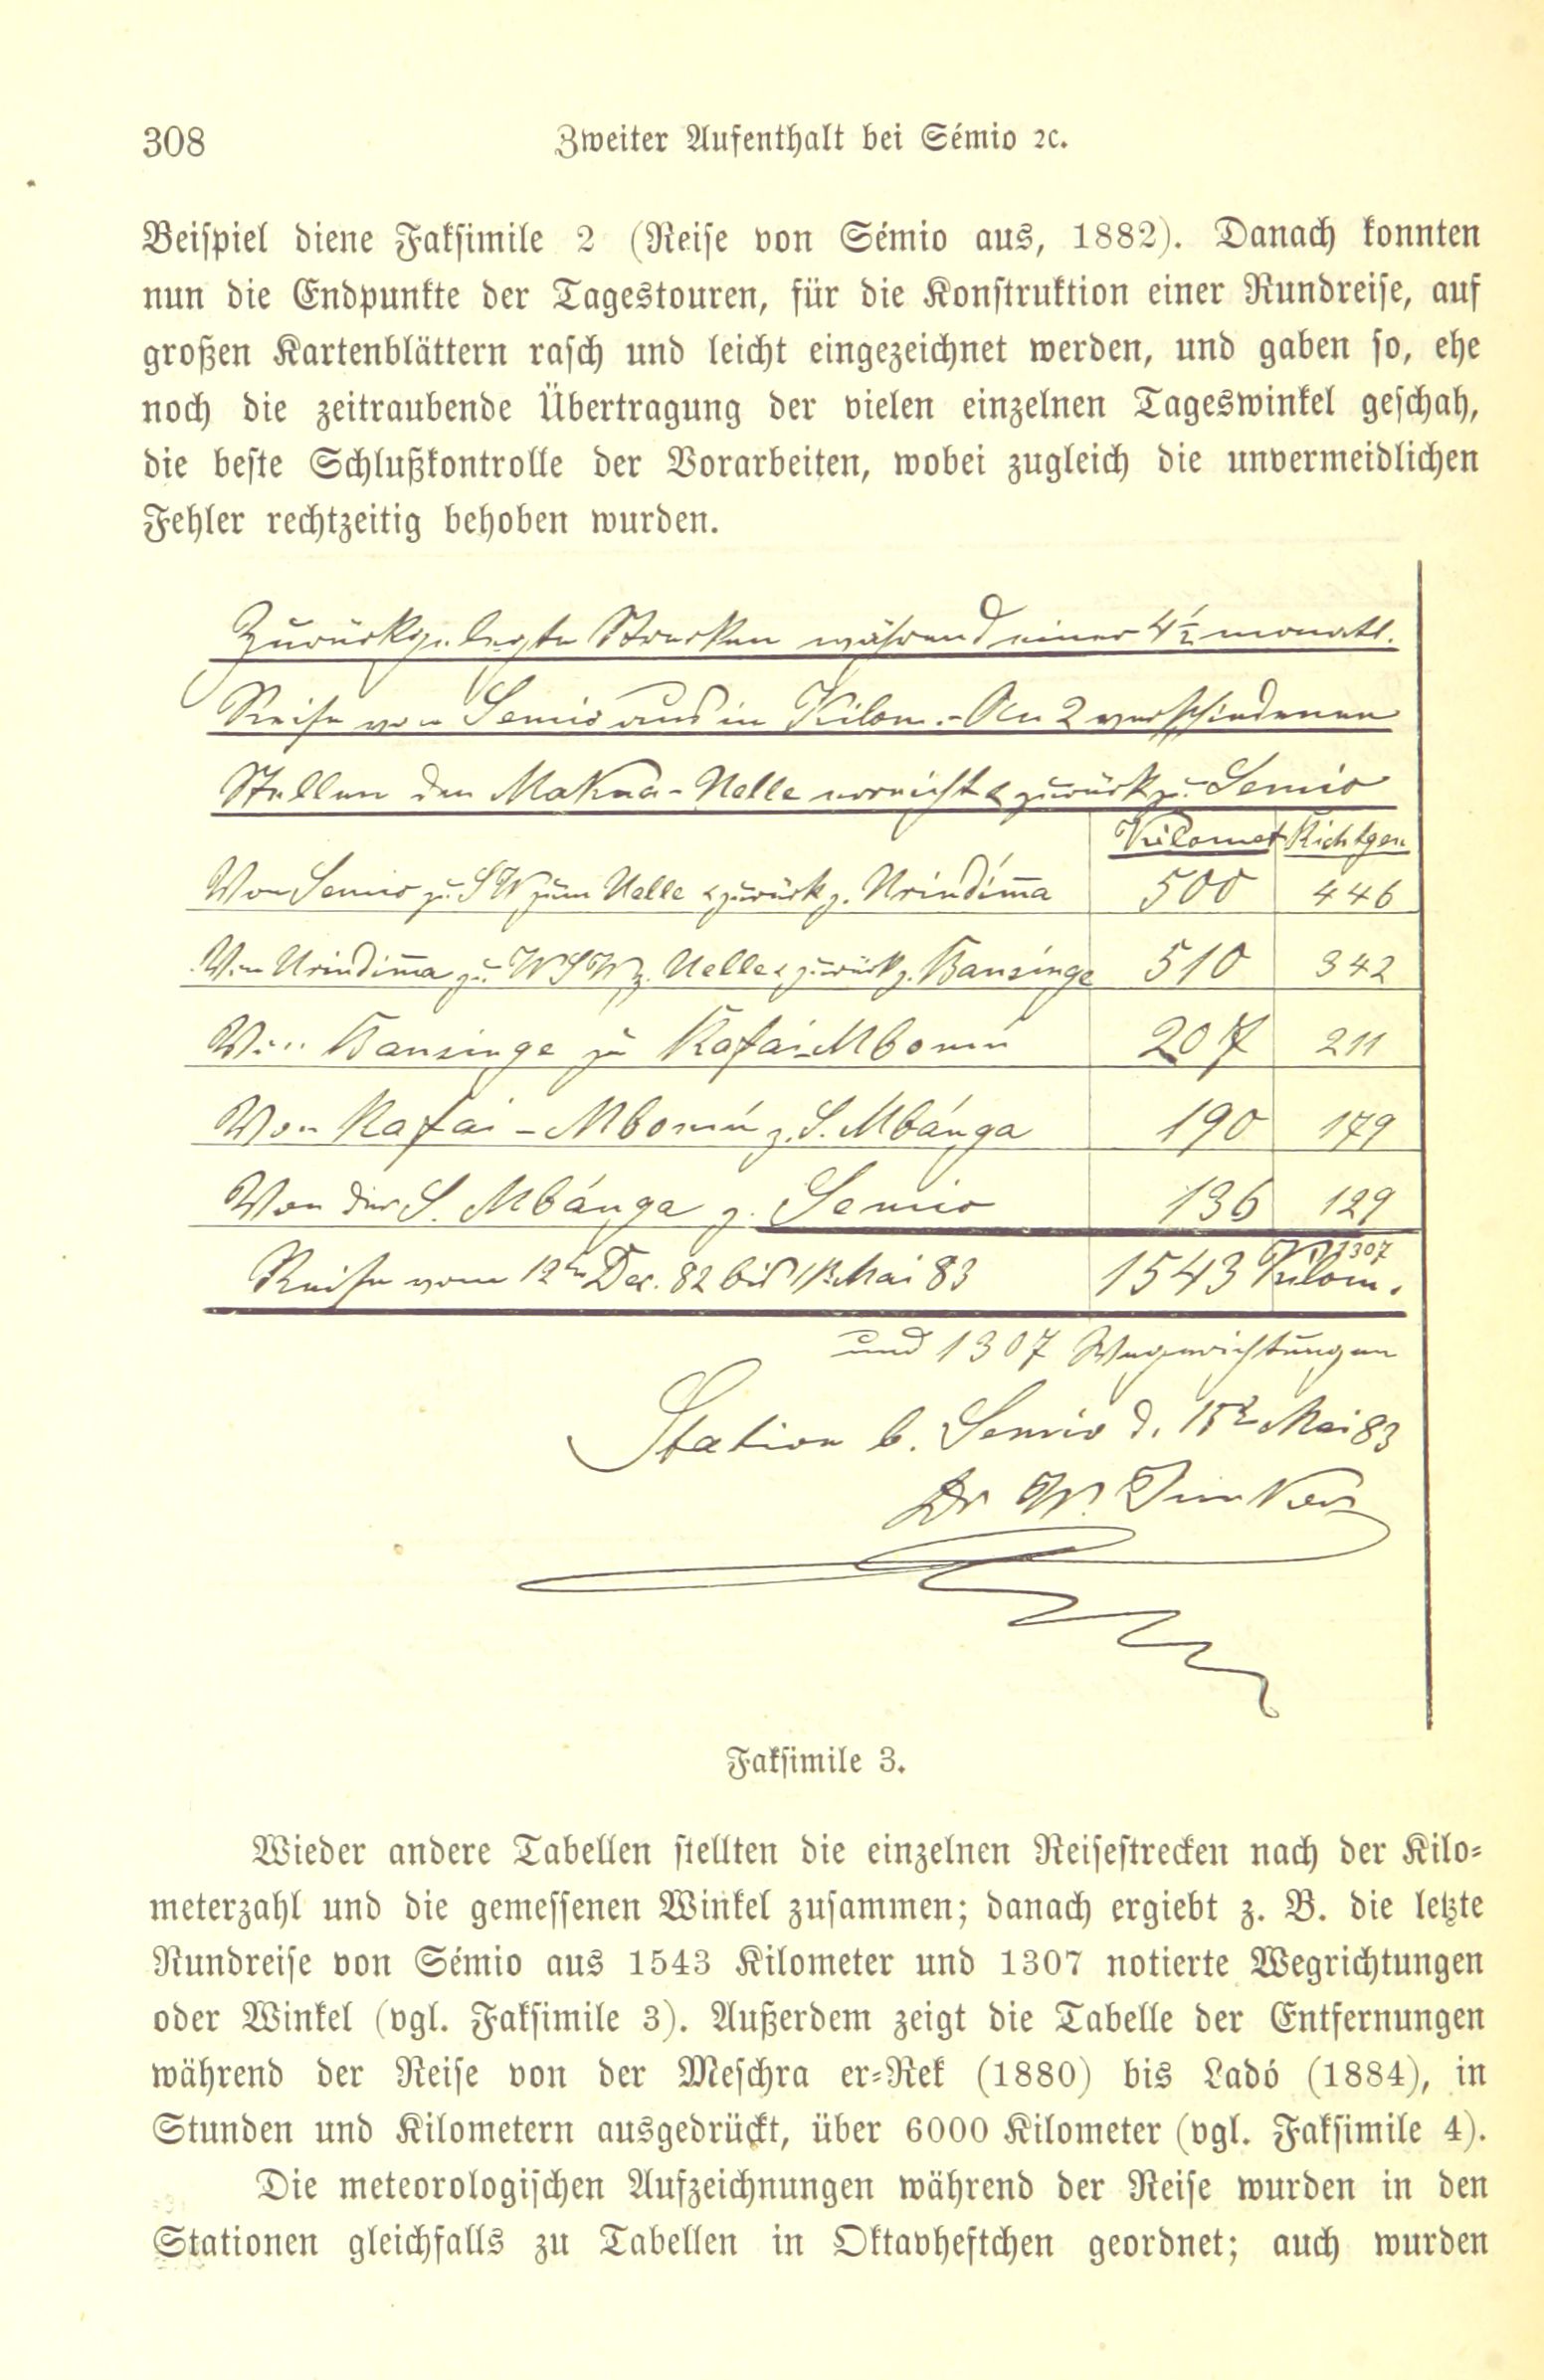 308 Zweiter Aufenthalt bei Sémio ꝛc.
Beispiel diene Faksimile 2 (Reise von Sémio aus, 1882). Danach konnten
nun die Endpunkte der Tagestouren, für die Konstruktion einer Rundreise, auf
großen Kartenblättern rasch und leicht eingezeichnet werden, und gaben so, ehe
noch die zeitraubende Übertragung der vielen einzelnen Tageswinkel geschah,
die beste Schlußkontrolle der Vorarbeiten, wobei zugleich die unvermeidlichen
Fehler rechtzeitig behoben wurden.
Zurückgelegte Strecken während einer 4½ monatl.
Reise von Semio aus in Kilom. - An 2 verschiedenen
Stellen den Makua-Uelle erreicht & zurück zu Semio
Kilomet Richtgen
Von Semio zu SW zum Uelle & zurück z. Urindim̄a 500 446
Von Urindim̄a zu WSW z. Uelle & zurück z. Bansinge 510 342
Von Bansinge zu Rafai-Mbomu 207 211
Von Rafai-Mbomú z. S. Mbánga 190 179
Von der S. Mbánga z. Semio 136 129
Reise vom 12ten Dec. 82 bis Mai 83 1543 Kilom. 1307
und 1307 Wegerichtungen
Station b. Semio d. Mai 83
Dr W. Junker
Faksimile 3.
Wieder andere Tabellen stellten die einzelnen Reisestrecken nach der Kilo-
meterzahl und die gemessenen Winkel zusammen; danach ergiebt z. B. die letzte
Rundreise von Sémio aus 1543 Kilometer und 1307 notierte Wegrichtungen
oder Winkel (vgl. Faksimile 3). Außerdem zeigt die Tabelle der Entfernungen
während der Reise von der Meschra er-Rek (1880) bis Ladó (1884), in
Stunden und Kilometern ausgedrückt, über 6000 Kilometer (vgl. Faksimile 4).
Die meteorologischen Aufzeichnungen während der Reise wurden in den
Stationen gleichfalls zu Tabellen in Oktavheftchen geordnet; auch wurden